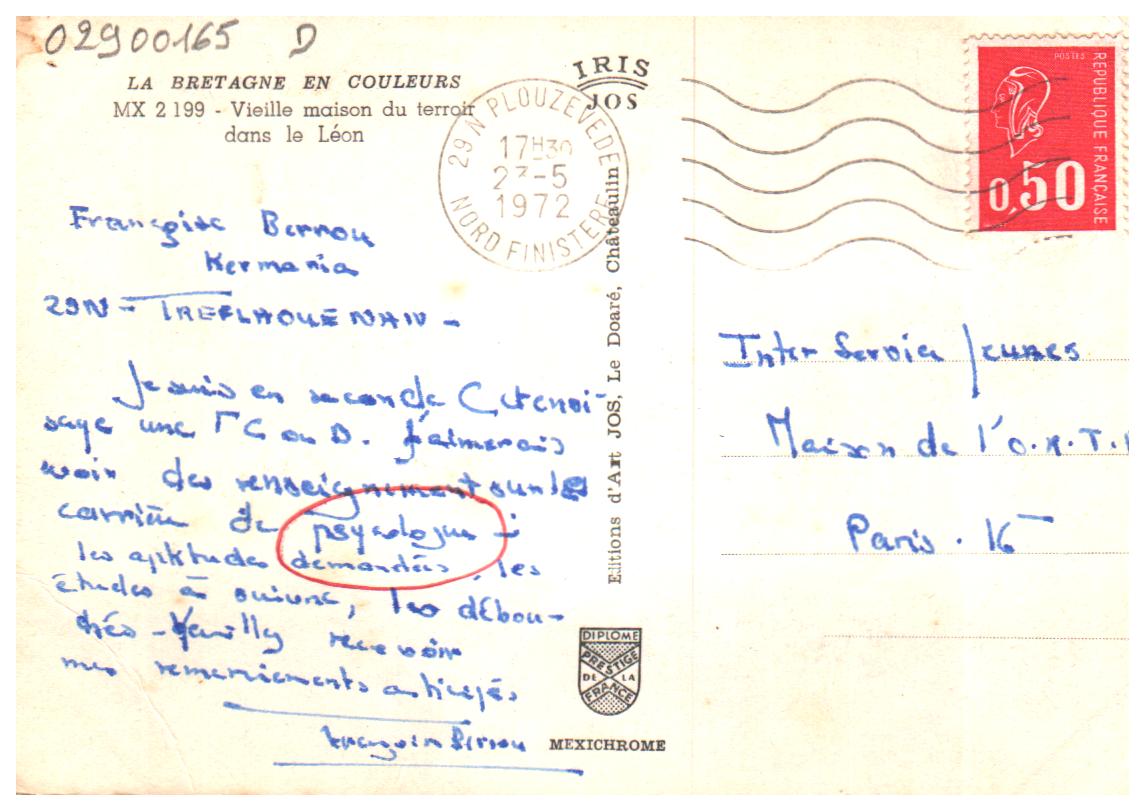 02900165 D
LA BRETAGNE EN COULEURS
MX 2199 - Vieille maison du terroir
dans le Léon
IRIS
JOS
29 N PLOUZEVEDE
17H30
23-5
1972
NORD FINISTERE
POSTES
REPUBLIQUE FRANÇAISE
0,50
Françoise Berrou
Kermaria
29N - TREFLAOUENAN -
Je suis en seconde C et envi-
sage une T C ou D. J'aimerais
avoir des renseignement sur la
carrière de psycologue :
les aptitudes demandées, les
études à suivre, les débou-
chés - Veuilly recevoir
mes remerciements anticipés
Françoise Berrou
Editions d'Art JOS, Le Doaré, Châteaulin
Inter Service Jeunes
Maison de l'O.R.T.
Paris. 16
DIPLOME
PRESTIGE
DE LA
FRANCE
MEXICHROME